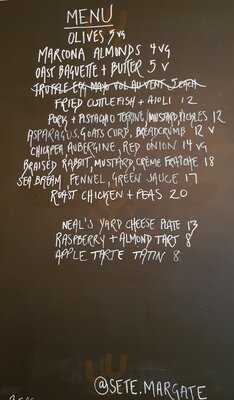 MENU
OLIVES 5 VG
MARCONA ALMONDS 4 VG
OAST BAGUETTE + BUTTER 5 V
TRUFFLE EGG VOL AU VENT
FRIED CUTTLEFISH + AIOLI 12
PORK + PISTACHIO TERRINE, MUSTARD, PICKLES 12
ASPARAGUS, GOATS CURD, BREADCRUMB 12 V
CHICKPEA, AUBERGINE, RED ONION 14 VG
BRAISED RABBIT, MUSTARD, CRÈME FRAICHE 18
SEA BREAM, FENNEL, GREEN SAUCE 17
ROAST CHICKEN + PEAS 20
NEAL'S YARD CHEESE PLATE 13
RASPBERRY + ALMOND TART 8
APPLE TARTE TATIN 8
@SETE.MARGATE